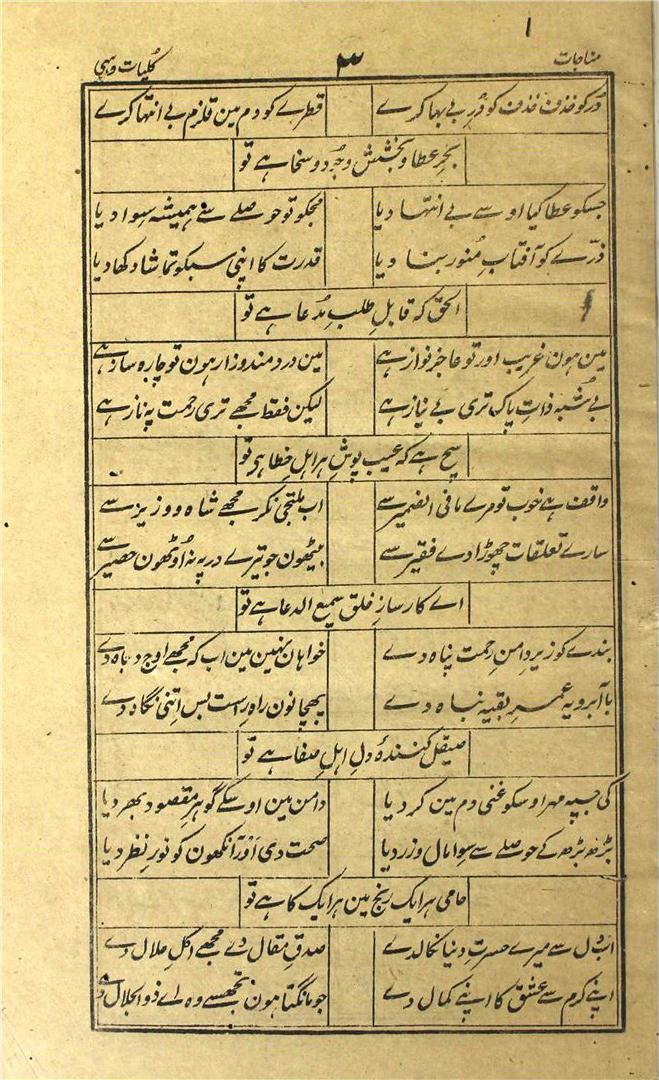 ۱
مناجات ۳ کلیات وہبی
دُر کو خذف خذف کو دُرِ بے بہا کرے قطرے کو دم مین قلزم بے انتہا کرے
بحرِ عطا و بخشش وجُود و سخا ہے تو
جسکو عطا کیا اوسے بے انتہا دیا مجکو تو حوصلے سے ہمیشہ سوا دیا
ذرّے کو آفتابِ مُنور بنا دیا قدرت کا اپنی سبکو تماشا دکھا دیا
الحق کہ قابلِ طلبِ مدعا ہے تو
مین ہون غریب اور تو عاجز نواز ہے مین دردمند و زار ہون تو چارہ ساز ہے
بے شُبہ ذاتِ پاک تری بے نیاز ہے لیکن فقط مجھے تری رحمت پہ ناز ہے
سچ ہے کہ عیب پوشِ ہر اہلِ خطا ہے تو
واقف ہے خوب تو مرے ما فی الضمیر سے اب ملتجی نکر مجھے شاہ و وزیر سے
سارے تعلقات چھوڑا دے فقیر سے بیٹھون جو تیرے در پہ نہ اُوٹھون حصیر سے
اے کارسازِ خلق سمیع الدعا ہے تو
بندے کو زیرِ دامنِ رحمت پناہ دے خواہان نہین مین اب کہ مجھے اوج و جاہ دے
با آبرو یہ عمرِ بقیہ نباہ دے پہچانون راہِ راست بس اتنی نگاہ دے
صیقل کنندۂ دلِ اہلِ صفا ہے تو
کی جسپہ مہر اوسکو غنی دم مین کر دیا دامن مین اوسکے گوہرِ مقصود بھر دیا
بڑھ بڑھ کے حوصلے سے سوا مال و زر دیا صحت دی اور آنکھون کو نورِ نظر دیا
حامی ہر ایک رنج مین ہر ایک کا ہے تو
اب دل سے میرے حسرتِ دنیا نکالدے صدقِ مقال دے مجھے اکلِ حلال دے
اپنے کرم سے عشق کا اپنے کمال دے جو مانگتا ہون تجھسے وہ اے ذو الجلال دے